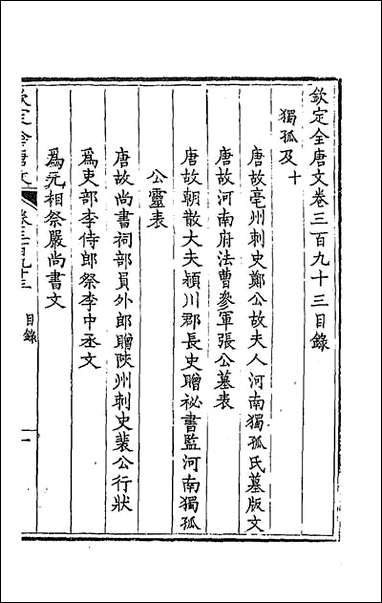 欽定全唐文卷三百九十三目錄
獨孤及十
唐故亳州刺史鄭公故夫人河南獨孤氏墓版文
唐故河南府法曹參軍張公墓表
唐故朝散大夫潁川郡長史贈祕書監河南獨孤
公靈表
唐故尚書祠部員外郎贈陝州刺史裴公行狀
爲吏部李侍郎祭李中丞文
爲元相祭嚴尚書文
欽定全唐文
卷三百九十三
目錄
一